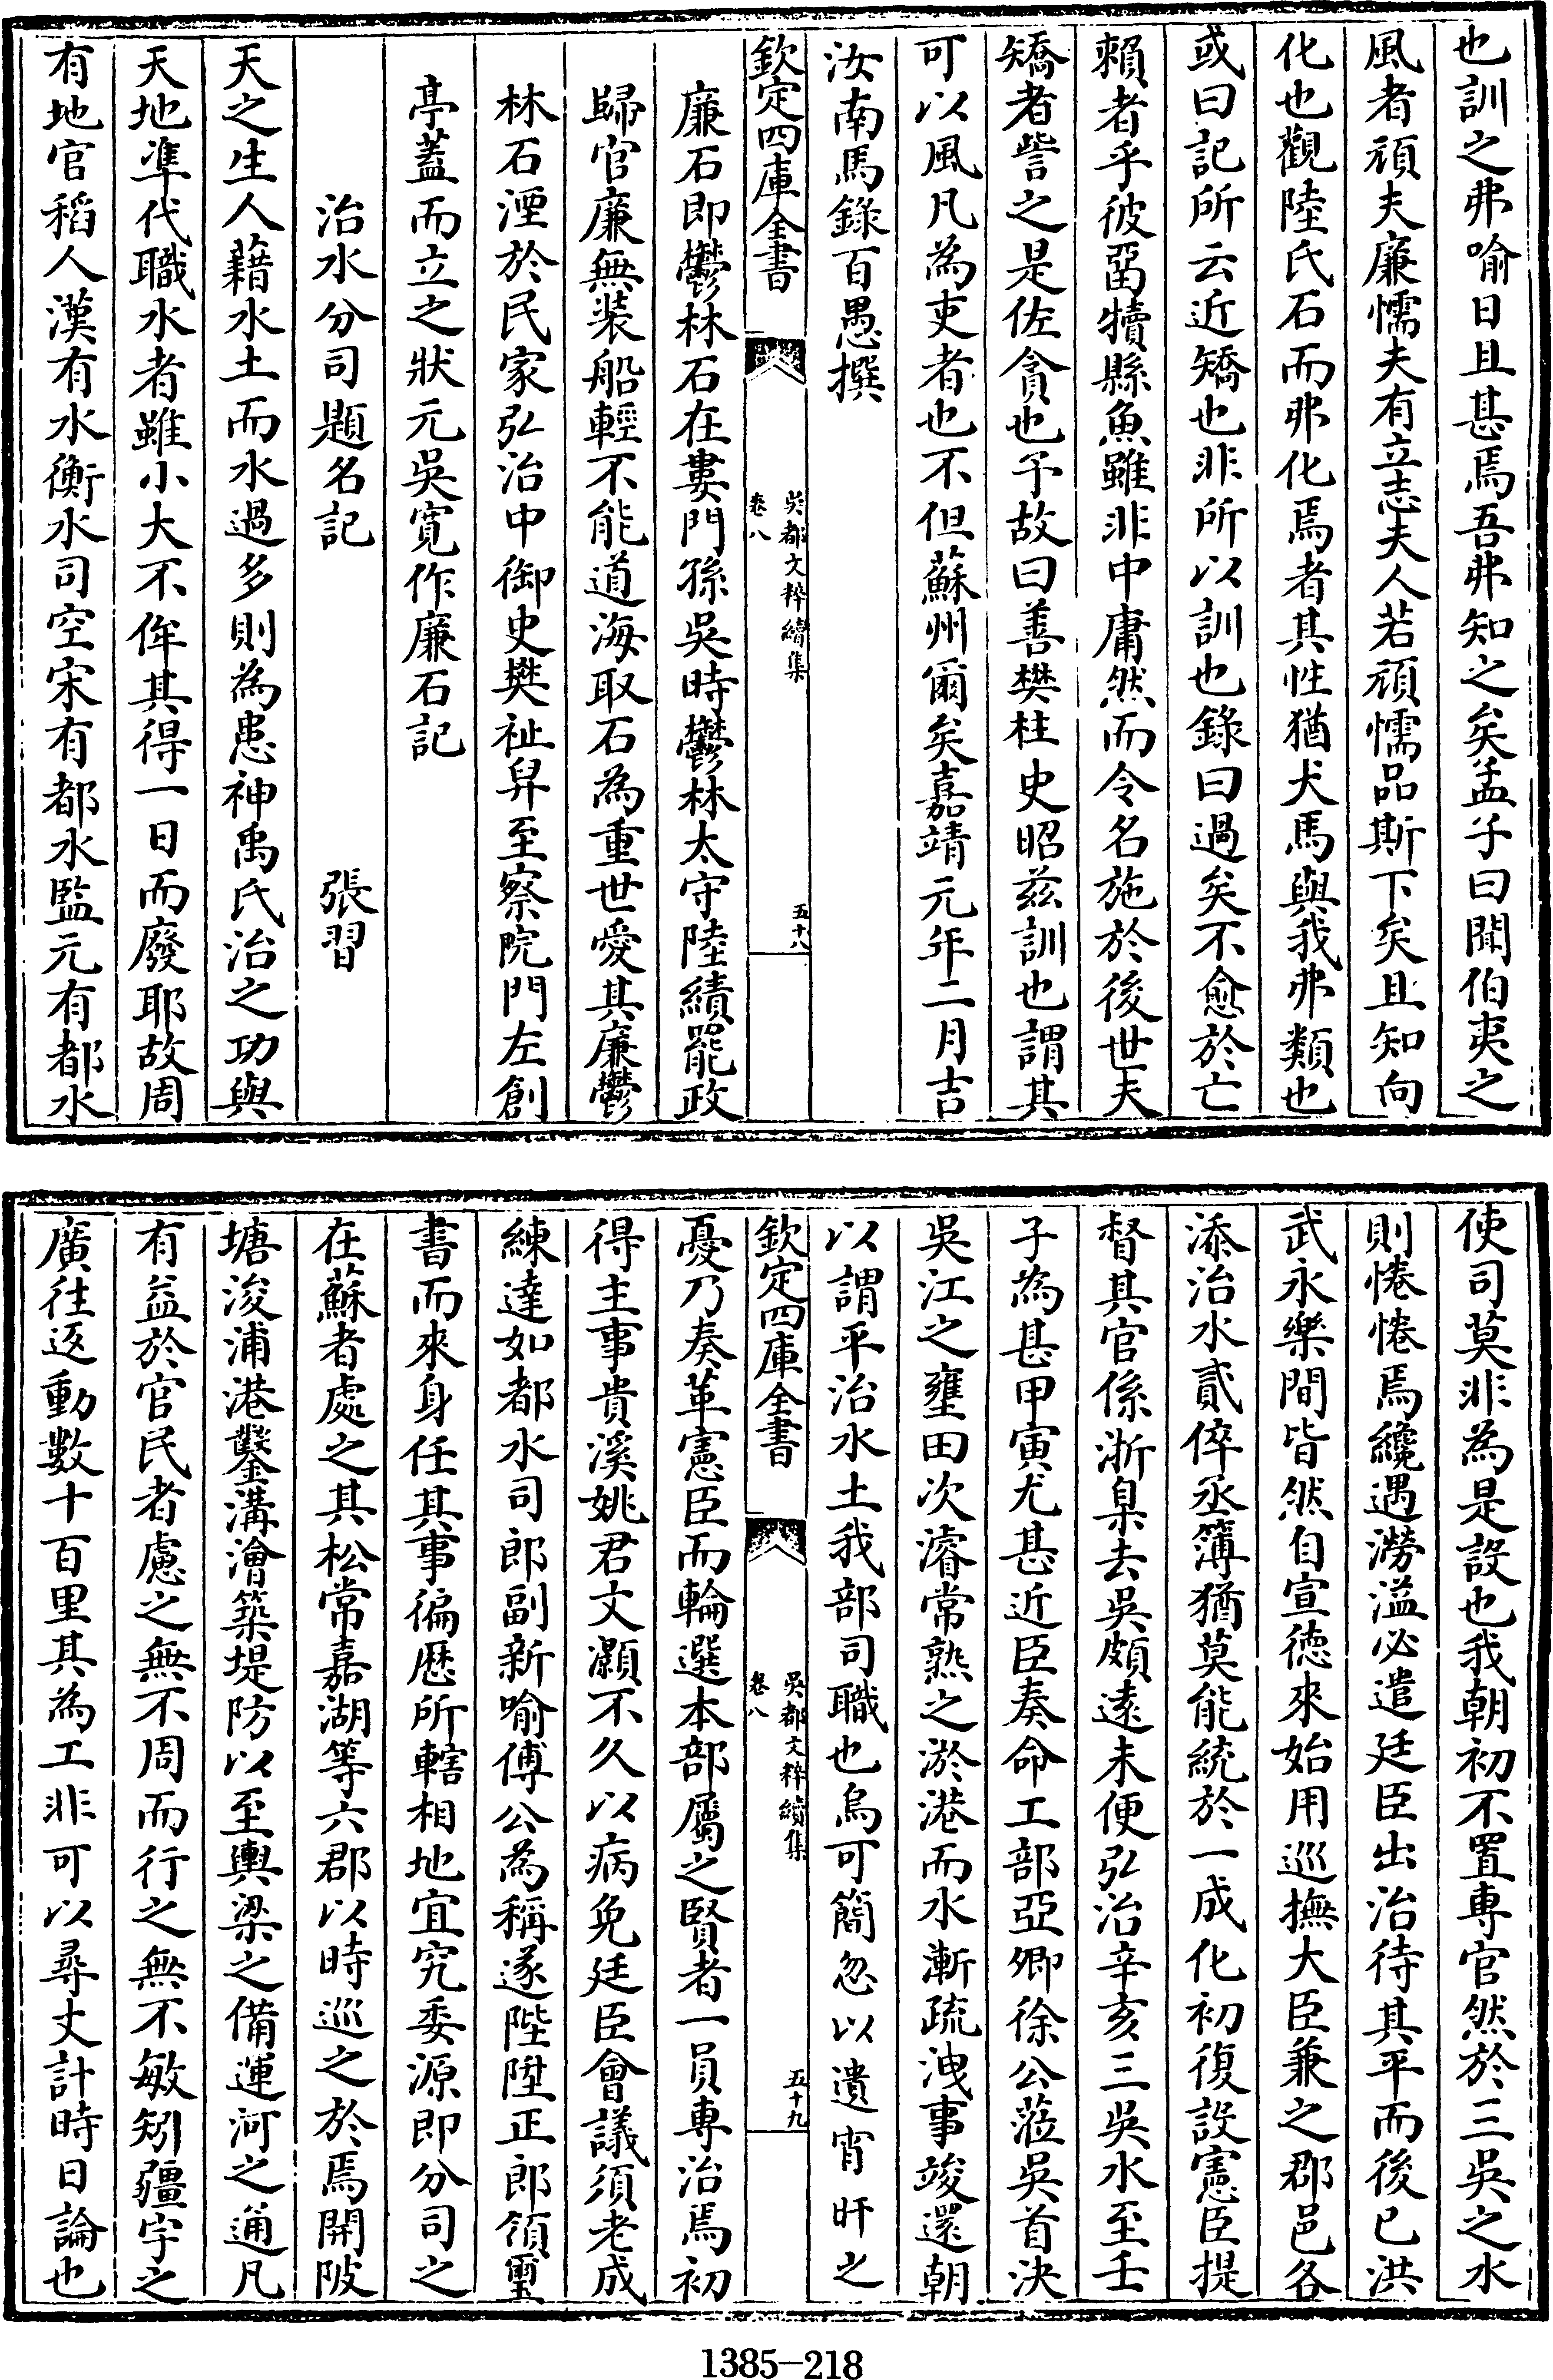 也訓之弗喻日且甚焉吾弗知之矣孟子曰聞伯夷之
風者頑夫廉懦夫有立志夫人若頑懦品斯下矣且知向
化也觀陸氏石而弗化焉者其性猶犬馬與我弗類也
或曰記所云近矯也非所以訓也錄曰過矣不愈於亡
賴者乎彼畱犢縣魚雖非中庸然而令名施於後世夫
矯者訾之是佐貪也予故曰善樊柱史昭茲訓也謂其
可以風凡為吏者也不但蘇州爾矣嘉靖元年二月吉
汝南馬錄百愚撰
欽定四庫全書
吳都文粹續集
卷八
五十八
廉石即鬱林石在婁門孫吳時鬱林太守陸績罷政
歸官廉無装船輕不能道海取石為重世愛其廉鬱
林石湮於民家弘治中御史樊祉舁至察院門左創
亭蓋而立之狀元吳寛作廉石記
治水分司題名記
張習
天之生人藉水土而水過多則為患神禹氏治之功與
天地準代職水者雖小大不侔其得一日而廢耶故周
有地官稻人漢有水衡水司空宋有都水監元有都水
使司莫非為是設也我朝初不置専官然於三吳之水
則惓惓焉纔遇澇溢必遣廷臣出治待其平而後已洪
武永樂間皆然自宣徳來始用巡撫大臣兼之郡邑各
添治水貳倅丞簿猶莫能統於一成化初復設憲臣提
督其官係浙臬去吳頗逺未便弘治辛亥三吳水至壬
子為甚甲寅尤甚近臣奏命工部亞卿徐公蒞吳首決
吳江之壅田次濬常熟之淤港而水漸疏洩事竣還朝
以謂平治水土我部司職也烏可簡忽以遺宵旰之
欽定四庫全書
吳都文粹續集
卷八
五十九
憂乃奏革憲臣而輪選本部屬之賢者一員専治焉初
得主事貴溪姚君文灝不久以病免廷臣會議須老成
練達如都水司郎副新喻傅公為稱遂陛陞正郎領璽
書而來身任其事徧厯所轄相地宜究委源即分司之
在蘇者處之其松常嘉湖等六郡以時巡之於焉開陂
塘浚浦港鑿溝澮築堤防以至輿梁之備運河之通凡
有益於官民者慮之無不周而行之無不敏矧疆宇之
廣往返動數十百里其為工非可以尋丈計時日論也
1385-218